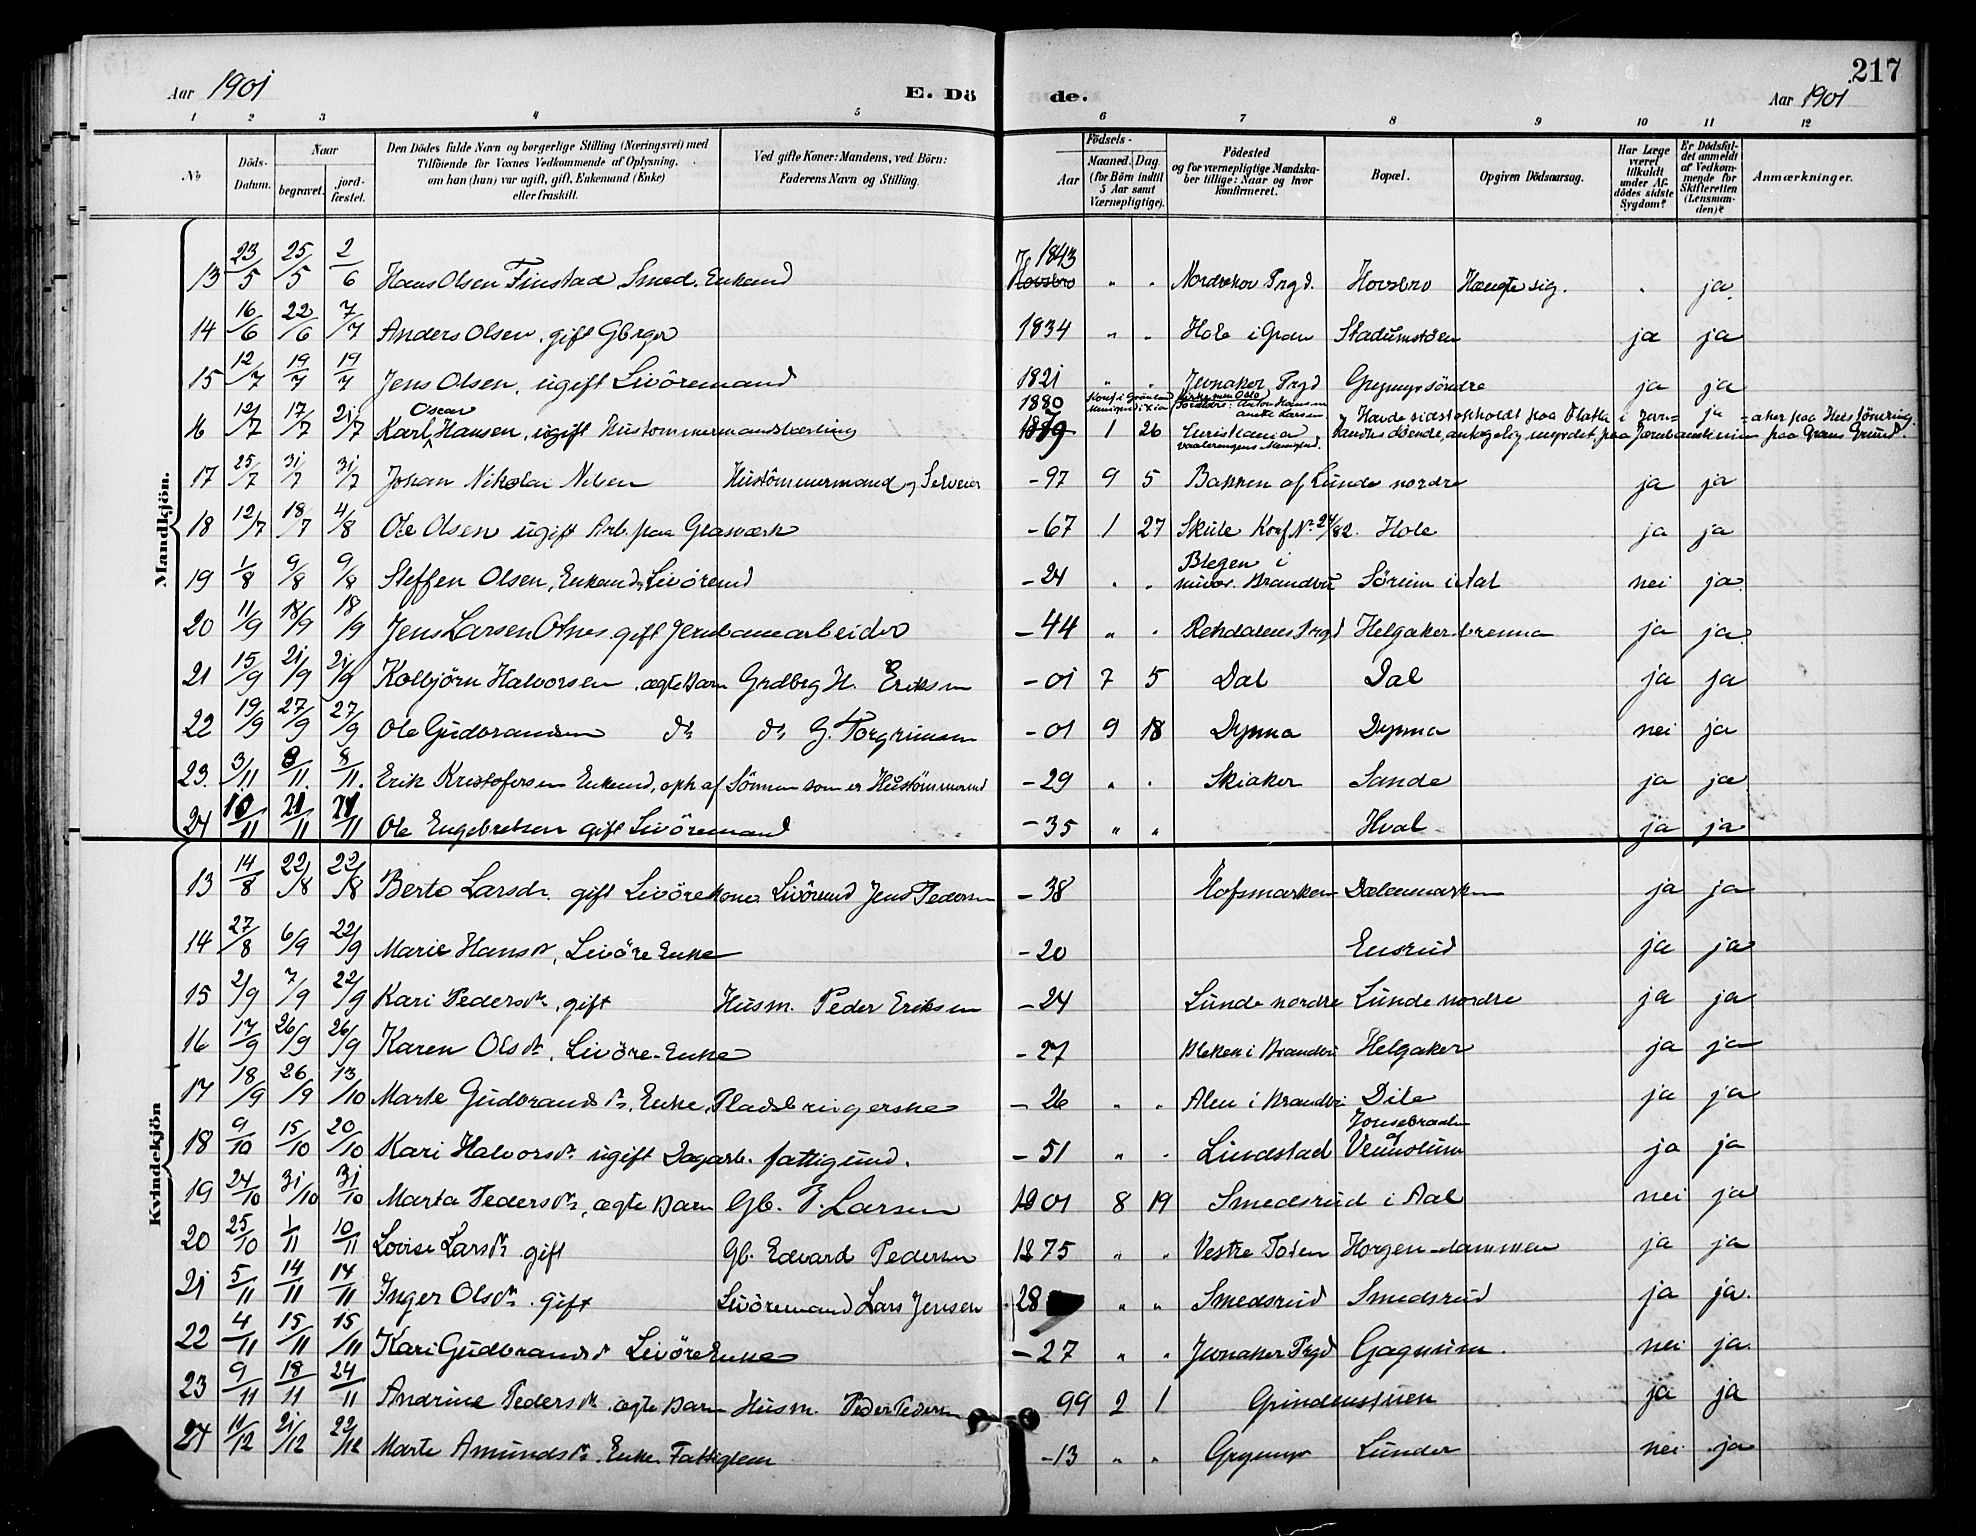 217
Aar 1901 E. Dö de. Aar 1901
1 2 3 4 5 6 7 8 9 10 11 12
No Döds-Datum. Naar begravet. jord-fæstet. Den Dödes fulde Navn og borgerlige Stilling (Næringsvei) med Tilföiende for Voxnes Vedkommende af Oplysning, om han (hun) var ugift, gift, Enkemand (Enke) eller fraskilt. Ved gifte Koner: Mandens, ved Börn: Faderens Navn og Stilling. Födsels- Aar Maaned. Dag (for Börn indtil 5 Aar samt Værnepligtige). Födested og for værnepligtige Mandskaber tillige: Naar og hvor konfirmeret. Bopæl. Opgiven Dödsaarsag. Har Læge været tilkaldt under Afdödes sidste Sygdom? Er Dödsfaldet anmeldt af Vedkommende for Skifteretten (Lensmanden)? Anmærkninger.
Mandkjön.
13 23/5 25/5 2/6 Hans Olsen Finstad Smed. Enkemd 1843 " " Nordrehov Prgd. Hovsbro Hængte sig. " ja.
14 16/6 22/6 7/7 Anders Olsen, gift Gbrger 1834 " " Hole i Gran Stadumstöen ja ja
15 12/7 19/7 19/7 Jens Olsen, ugift Livöremand 1821 " " Jevnaker Prgd Grymyr söndre ja ja
16 12/7 17/7 21/7 Karl Oscar Hansen, ugift Hustømmermandslærling 1880 1879 1 26 Kristiania Havde sidst opholdt paa Flatla i Jevn= ja =aker paa Hustömring. Fandtes döende, antagelig myrdet, paa Jernbanelinien paa Grans Grund.
17 25/7 31/7 31/7 Johan Nikolai Nilsen Hustömmermand og Selveier -97 9 5 Bakken af Lunde nordre ja ja
18 12/7 18/7 4/8 Ole Olsen ugift Arb. paa Glasværk -67 1 27 Skute Konf Nr 24/82. Hole ja ja
19 1/8 9/8 9/8 Steffen Olsen, Enkemd, Livöremd -24 " " Blegen i Brandbu Söreim i Aal nei ja.
20 11/9 18/9 18/9 Jens Larsen Otnes gift Jernbanearbeider -44 " " Rendalens Prgd Helgakerbrenna ja ja
21 15/9 21/9 21/9 Kolbjörn Halvorsen ægte Barn Grdbrg H. Eriksen -01 7 5 Dal Dal ja ja
22 19/9 27/9 27/9 Ole Gudbrandsen do do G. Torgrimsen -01 9 18 Dynna Dynna nei ja
23. 3/11 8/11. 8/11. Erik Kristofersen Enkemd, oph. af Sönnen som er Hustömmermd -29 " " Skiaker Sande ja ja
24 10/11 21/11 21/11 Ole Engebretsen gift Livöremand -35 " " Hval ja ja
Kvindekjön
13 14/8 22/8 22/8 Berte Larsdr. gift Livörekone Livöremd Jens Pedersen -38 Hofsmarken Dælenmarken ja ja
14 27/8 6/9 22/9 Marie Hansdr, Livöre Enke -20 Ensrud ja ja
15 2/9 7/9 22/9 Kari Pedersdr, gift Husm. Peder Eriksen -24 Lunde nordre Lunde nordre ja ja
16 17/9 26/9 26/9 Karen Olsdr, Livöre-Enke -27 Bleken i Brandbu Helgaker ja ja
17 18/9 26/9 13/10 Marte Gudbrandsdr, Enke, Pladsbrugerske -26 " " Alen i Brandbu Dile ja ja
18 9/10 15/10 20/10 Kari Halvorsdr ugift Dagarb. fattigund. -51 " " Lundstad Jonsebraaten Vennolum ja ja
19 24/10 31/10 31/10 Marta Pedersdr, ægte Barn Gb. P. Larsen 1901 8 19 Smedsrud i Aal nei ja
20 25/10 1/11 10/11 Lovise Larsdr gift Gb. Edvard Pedersen 1875 " " Vestre Toten Horgen-dammen ja ja
21 5/11 14/11 14/11 Inger Olsdr. gift Livöremand Lars Jensen 28 " " Smedsrud Smedsrud ja ja.
22 4/11 15/11 15/11 Kari Gudbrandsdr Livöre Enke -27 " " Jevnaker Prgd Gagnum. nei ja.
23 9/11 18/11 24/11 Andrine Pedersdr ægte Barn Husm. Peder Pedersen 99 2 1 Grindenstuen ja ja
24 11/12 21/12 22/12 Marte Amundsdr. Enke. Fattiglem -13 " " Grymyr Lunder nei ja